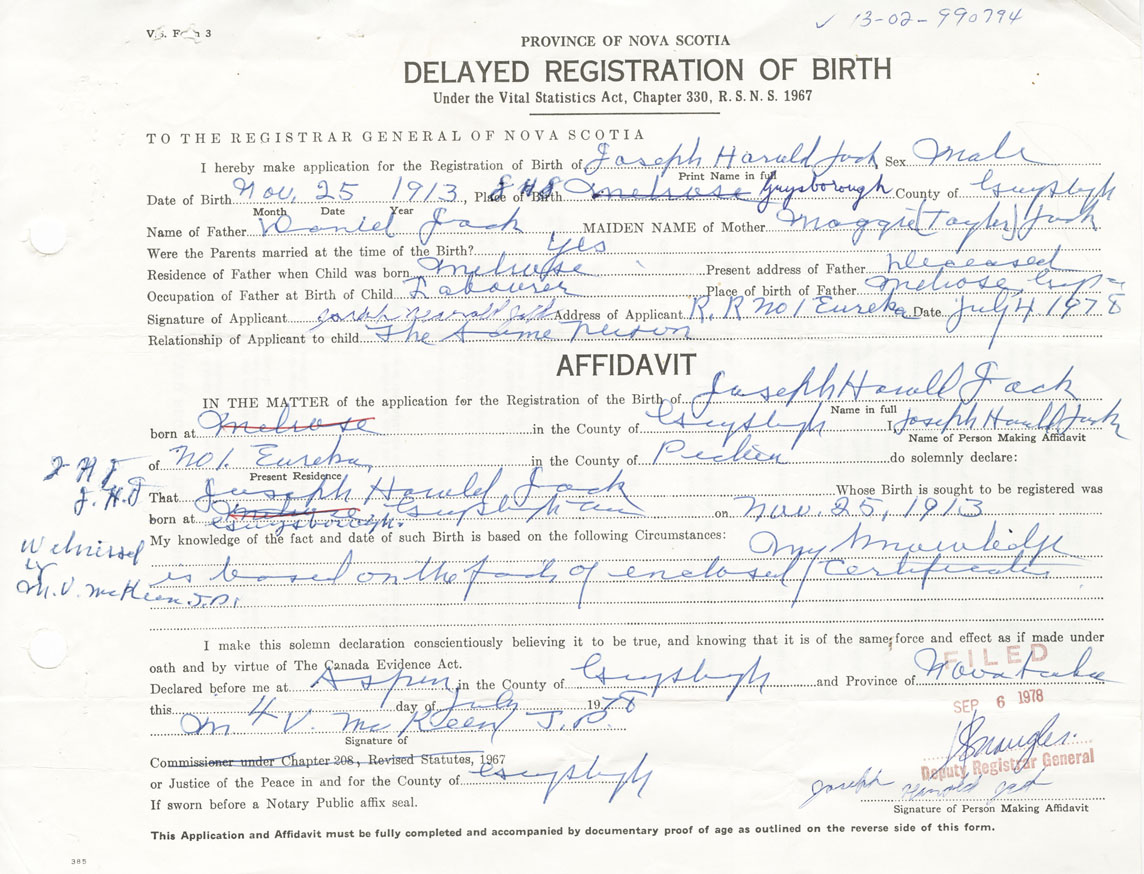 ✓ 13-02-990794
V.S. Form 3
PROVINCE OF NOVA SCOTIA
DELAYED REGISTRATION OF BIRTH
Under the Vital Statistics Act, Chapter 330, R. S. N. S. 1967
TO THE REGISTRAR GENERAL OF NOVA SCOTIA
I hereby make application for the Registration of Birth of Joseph Harold Jack Sex Male
Print Name in full
Date of Birth Nov. 25 1913, Place of Birth Melrose Guysborough County of Guysbgh
Month Date Year
Name of Father Daniel Jack MAIDEN NAME of Mother Maggie (Taylor) Jack
Were the Parents married at the time of the Birth? Yes
Residence of Father when Child was born Melrose Present address of Father Deceased
Occupation of Father at Birth of Child Labourer Place of birth of Father Melrose
Signature of Applicant Joseph Harold Jack Address of Applicant R. R No 1 Eureka Date July 4 1978
Relationship of Applicant to child The Same Person
AFFIDAVIT
IN THE MATTER of the application for the Registration of the Birth of Joseph Harold Jack
Name in full
born at Melrose in the County of Guysbgh I, Joseph Harold Jack
Name of Person Making Affidavit
J H J of No 1. Eureka, in the County of Pictou do solemnly declare:
Present Residence
J. H. J That Joseph Harold Jack Whose Birth is sought to be registered was
born at Melrose Guysbgh on Nov. 25, 1913
Guysborough.
My knowledge of the fact and date of such Birth is based on the following Circumstances: My Knowledge
Witnessed by is based on the facts of enclosed Certificate
M. V. McKeen J.P.
I make this solemn declaration conscientiously believing it to be true, and knowing that it is of the same force and effect as if made under
oath and by virtue of The Canada Evidence Act.
Declared before me at Aspen, in the County of Guysbgh and Province of Nova Scotia
FILED
this 4 day of July 1978
SEP 6 1978
M V. McKeen J.P.
Signature of
Commissioner under Chapter 208, Revised Statutes, 1967
or Justice of the Peace in and for the County of Guysbgh
Deputy Registrar General
Joseph Harold Jack
If sworn before a Notary Public affix seal.
Signature of Person Making Affidavit
This Application and Affidavit must be fully completed and accompanied by documentary proof of age as outlined on the reverse side of this form.
385